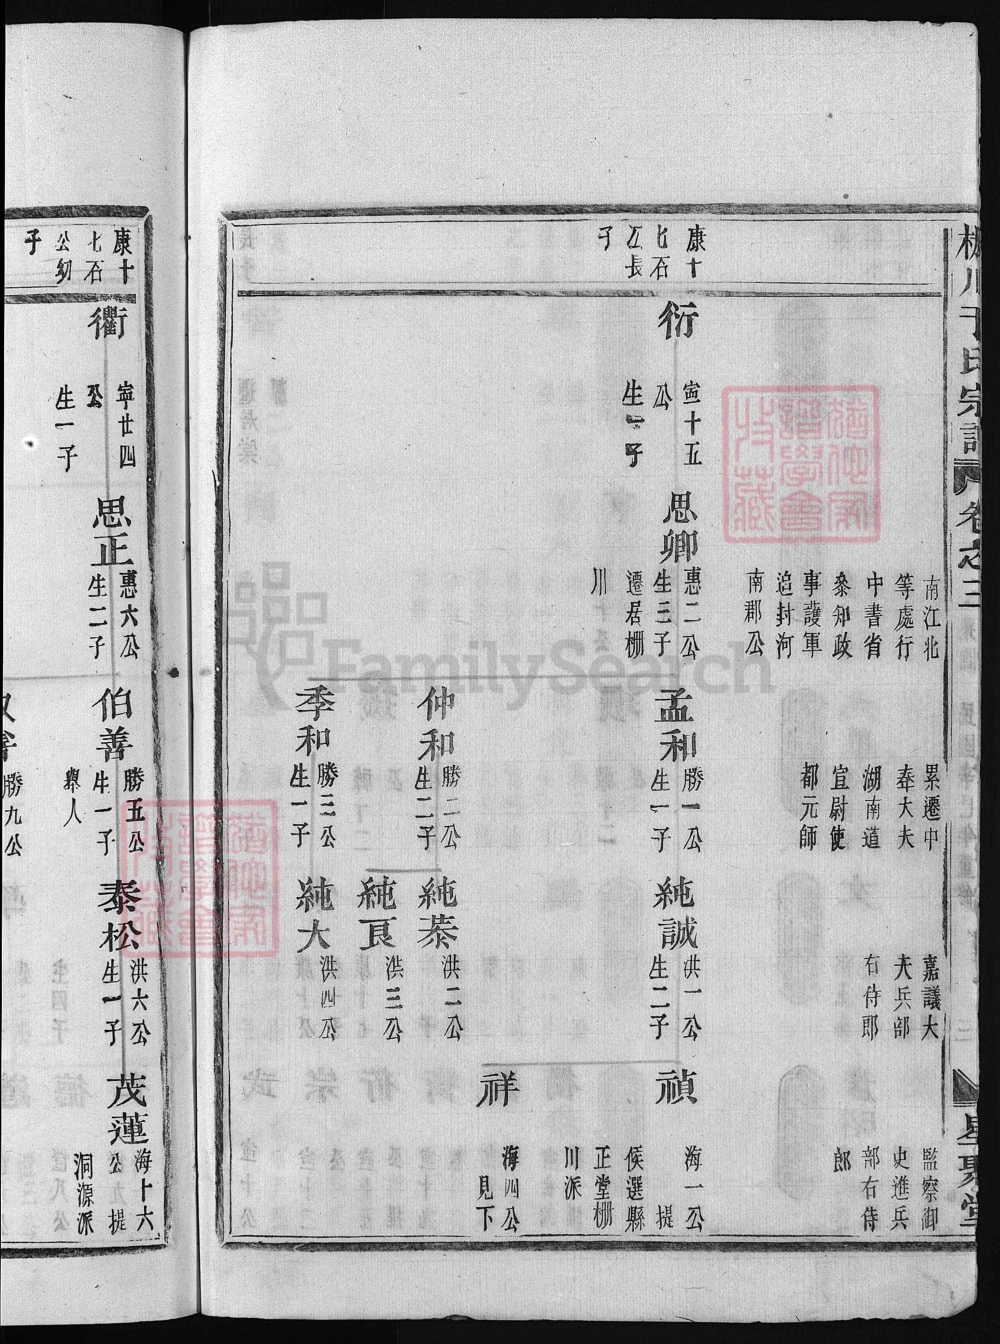 于氏宗譜
卷之三
星聚堂
南江北
等處行
中書省
叅知政
事護軍
追封河
南郡公
累遷中
奉大夫
湖南道
宣尉使
都元師
嘉議大
夫兵部
右侍郎
監察御
史進兵
部右侍
郎
康十
七石
公長
子
衍
宣十五
公
生一子
思卿
惠二公
生三子
遷居柵
川
孟和
勝一公
生一子
純誠
洪一公
生二子
禎
海一公
提
侯選縣
正堂柵
川派
祥
海四公
見下
仲和
勝二公
生二子
純恭
洪二公
純良
洪三公
季和
勝三公
生一子
純大
洪四公
康十
七石
公幼
子
衢
寧廿四
公
生一子
思正
惠六公
生二子
伯善
勝五公
生一子
舉人
泰松
洪六公
生一子
茂蓮
海十六
公提
洞源派
勝九公
FamilySearch